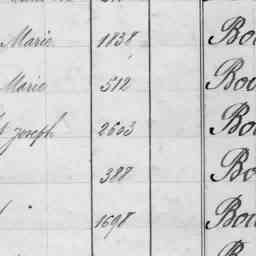 Marie 1838 Bou
Marie 512 Bou
Joseph 2603 Bou
388 Bou
1698 Bou